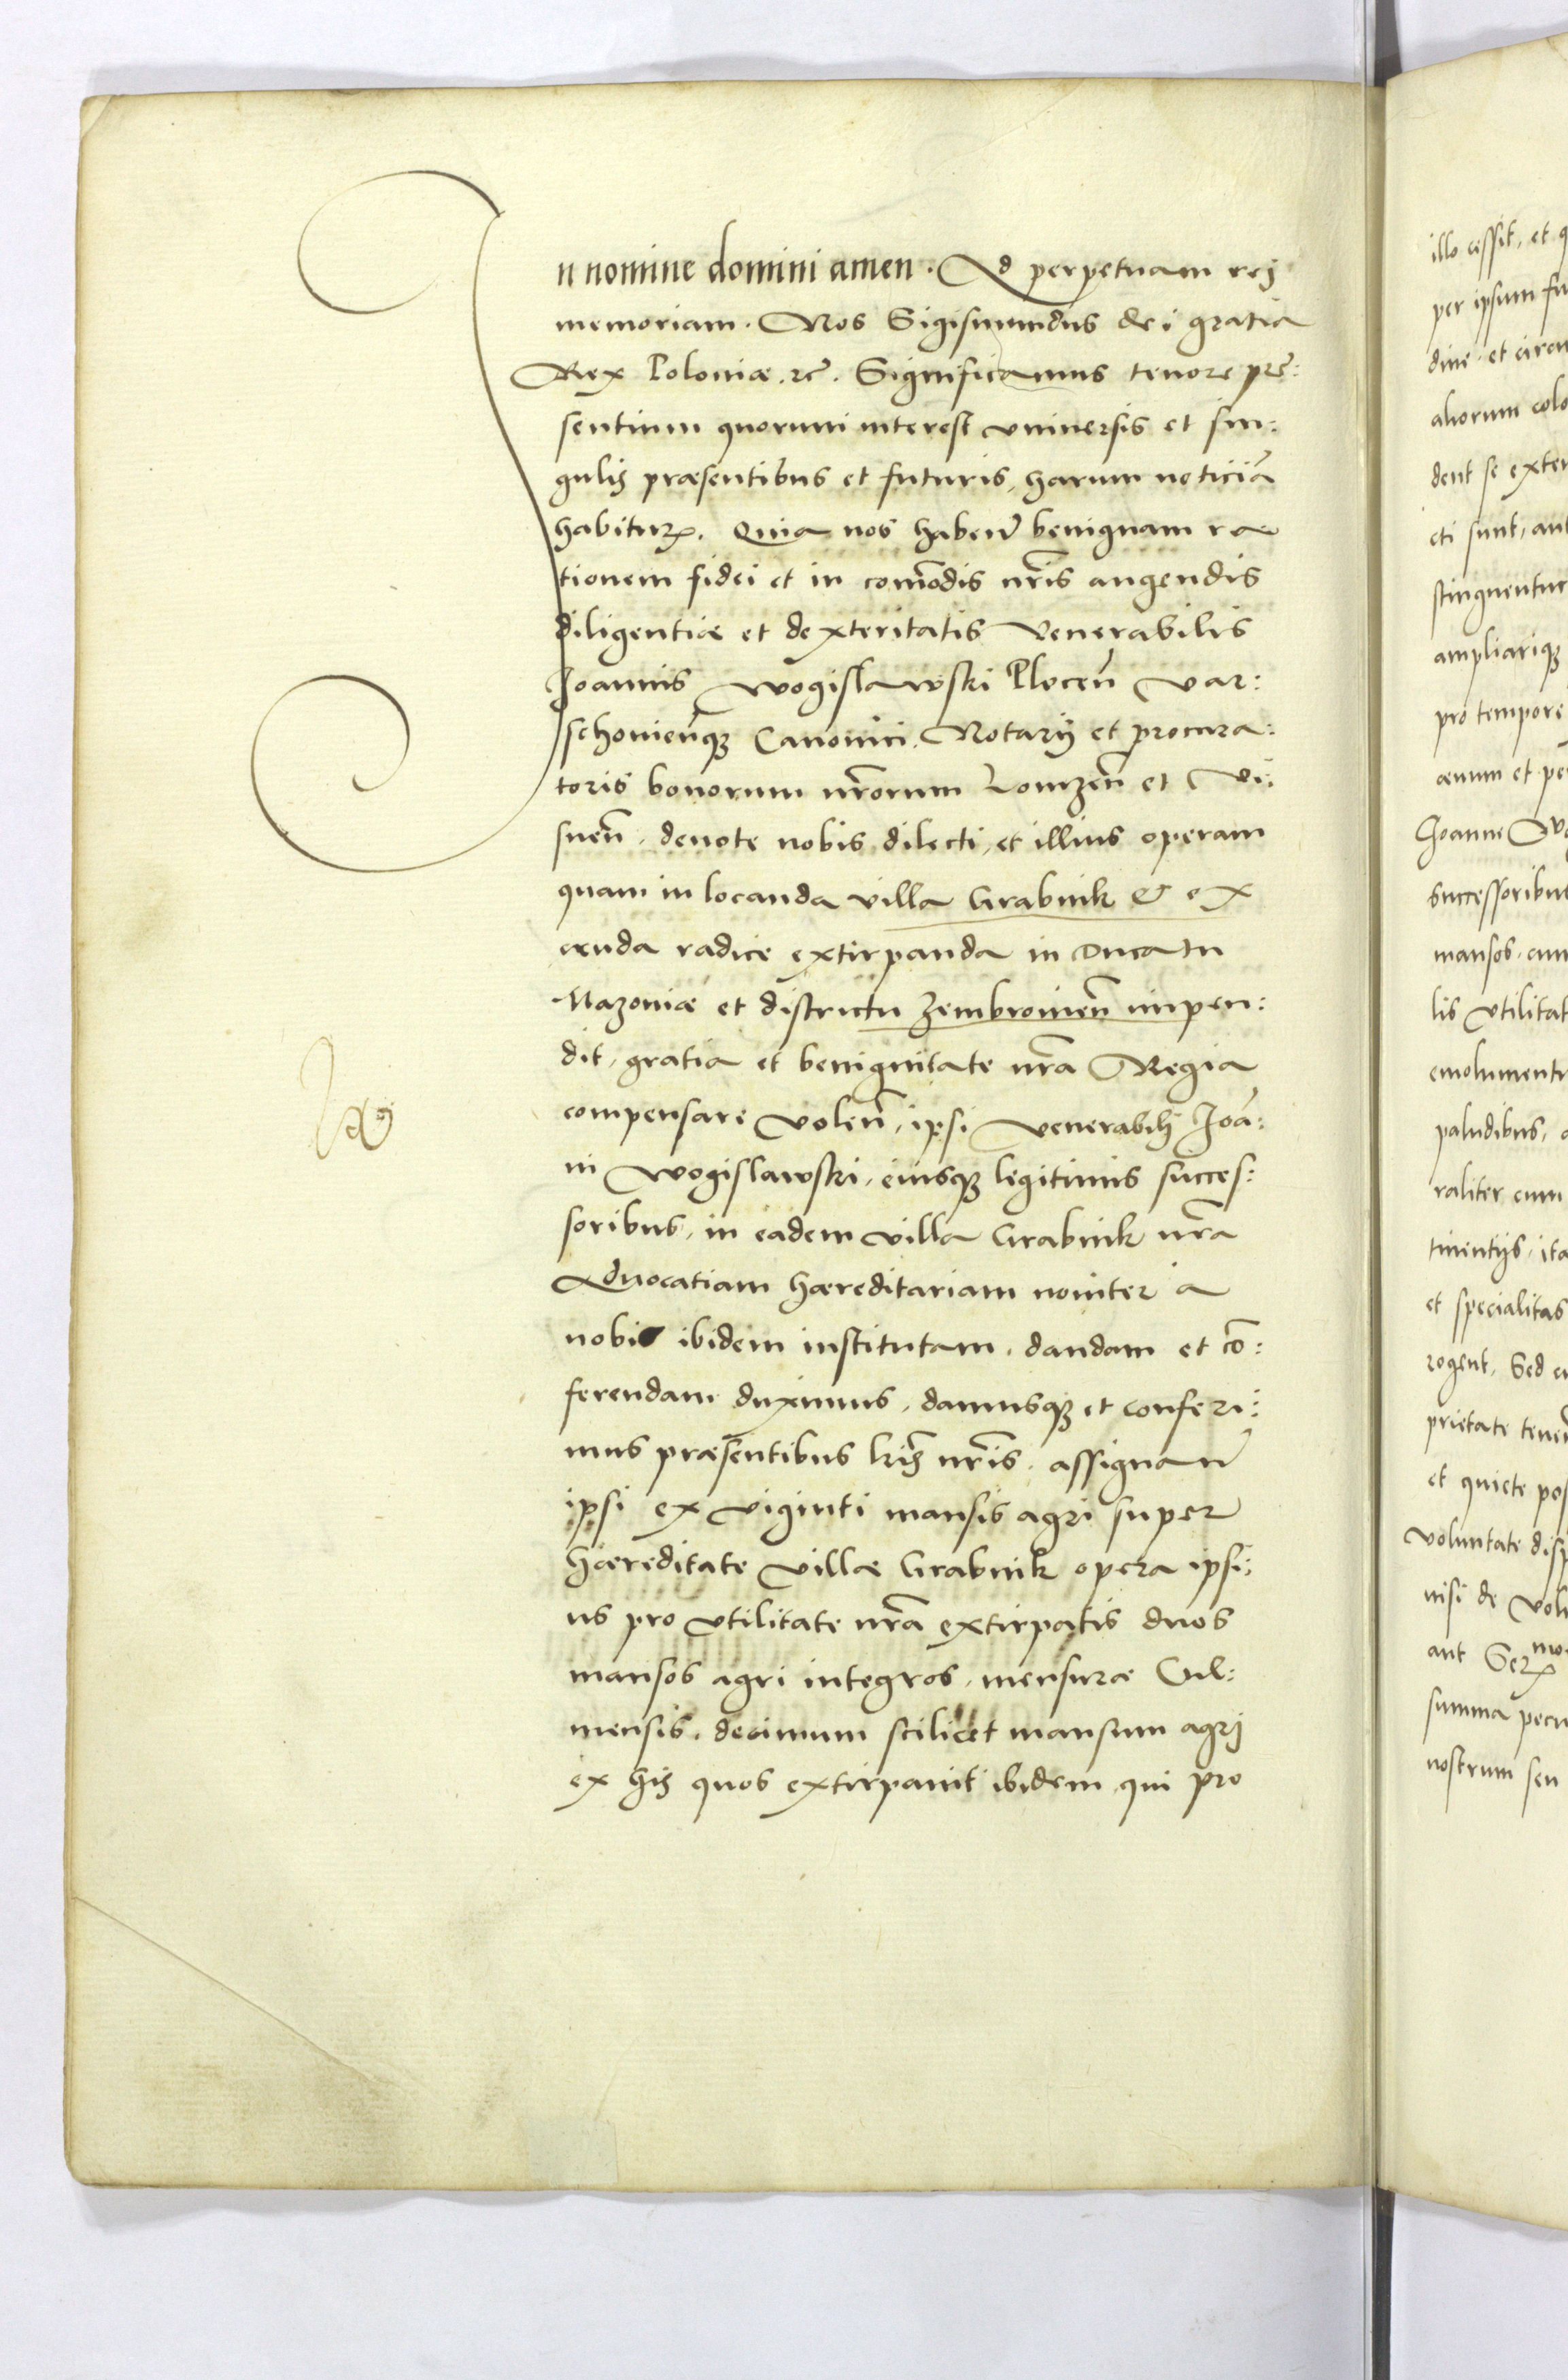 In nomine domini amen. Ad perpetuam rej
memoriam. Nos Sigismundus dei gratia
Rex Poloniæ. rc̃. Significamus tenore præ:
sentium quorum interest vniuersis et sin:
gulis præsentibus et futuris, harum noticiã
habiturꝝ. Quia nos habeñ benignam ra
tionem fidei et in com̃odis nr̃is augendis
diligentiæ et dexteritatis Venerabilis
Joannis Wogislawski Plocen̄ Var:
schouienqꝫ Canonici, Notarij et procura:
toris bonorum nr̃orum Lomzen̄ et Vi:
snen̄, deuote nobis dilecti, et illius operam
quam in locanda villa Grabnik & ex
cruda radice extirpanda in Ducatu
Mazoniæ et districtu Zembroinen̄ impen:
dit, gratia et benignitate nr̃a Regia
compensare volen̄, ipsi venerabili Joã:
ni Wogislawski, eiusqꝫ legitimis succes:
soribus, in eadem villa Grabnik nr̃a
Aduocatiam hæreditariam nouiter a
nobis ibidem institutam, dandam et cõ:
ferendam duximus, damusqꝫ et conferi:
mus præsentibus lr̃is nr̃is, assignañ
ipsi ex viginti mansis agri super
hæreditate villæ Grabnik opera ipsi:
us pro vtilitate nr̃a extirpatis duos
mansos agri integros, mensuræ Cul:
mensis, decimum scilicet mansum agri
ex his quos extirpauit ibidem, qui pro
illo cessit, et q
per ipsum fu
dine et circu
aliorum colo
dent se exten
cti sunt, aut
stinguentur
ampliariqꝫ
pro tempore
æuum et pe
Joanni Wo
successoribus
mansos, cum
lis vtilitat
emolument
paludibus, a
raliter cum
tinentijs, ita
et specialitas
rogent, Sed
prietate tenen̄
et quiete pos
voluntate disp
nisi de volu
aut Ser
summa pecu
nostrum seu